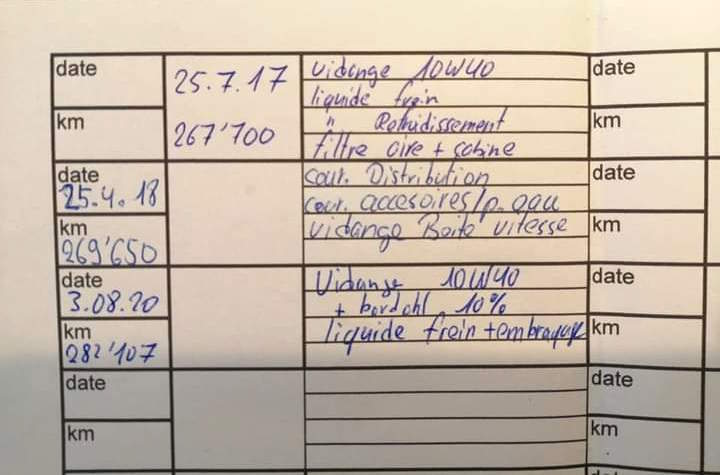 date
25.7.17
vidange 10W40
date
liquide frein
km
267'700
" Refruidissement
km
filtre aire + cabine
date
cour. Distribution
date
25.4.18
cour. accesoires/p. eau
km
vidange Boite vitesse
km
269'650
date
Vidange 10W40
date
3.08.20
+ bardohl 10%
km
liquide frein + embrayage
km
282'107
date
date
km
km